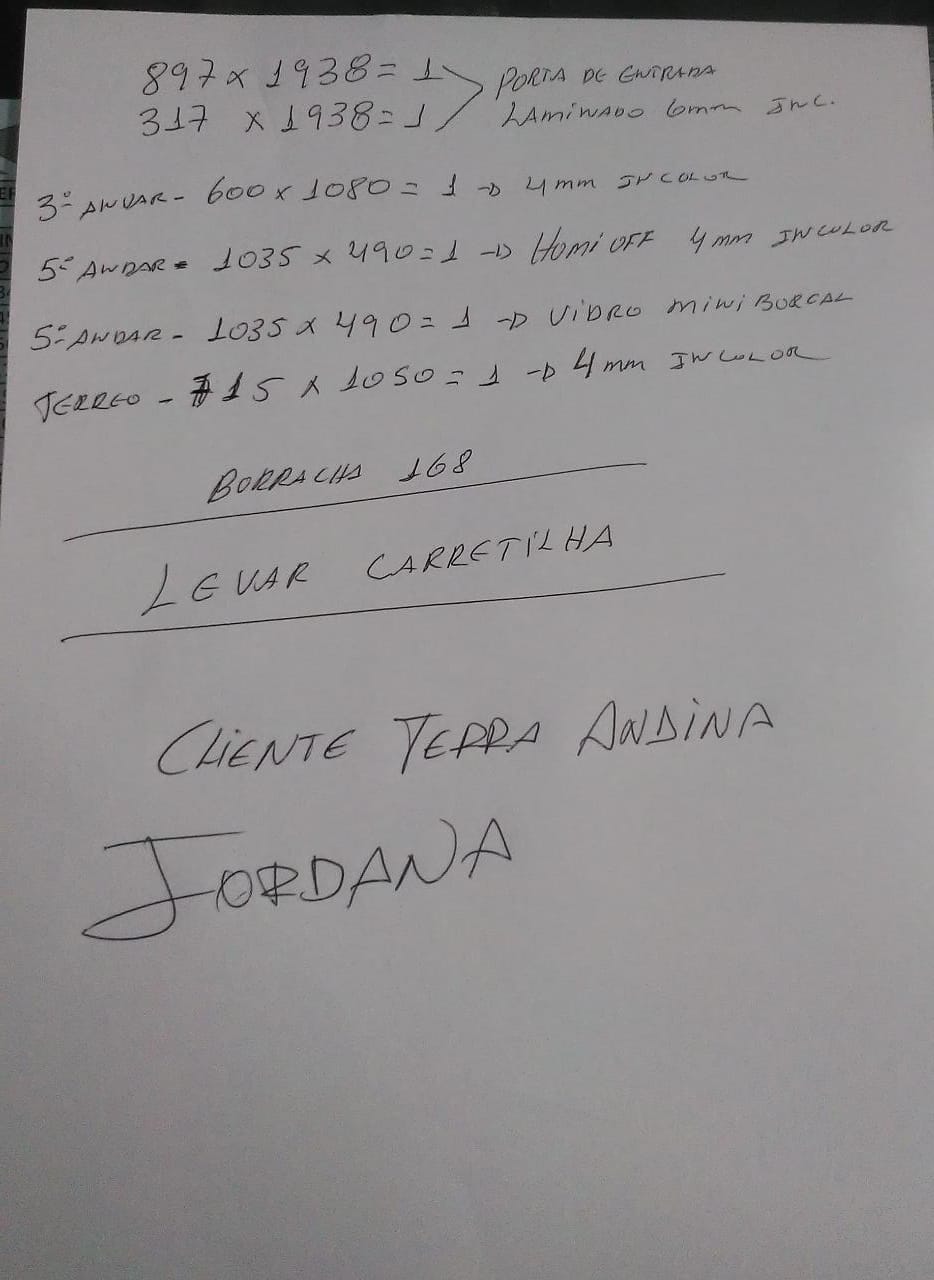 897 x 1938 = 1 PORTA DE ENTRADA
317 x 1938 = 1 LAMINADO 6mm INC.
3º ANDAR - 600 x 1080 = 1 -> 4mm INCOLOR
5º ANDAR = 1035 x 490 = 1 -> HOMIOFF 4mm INCOLOR
5º ANDAR - 1035 x 490 = 1 -> VIDRO MINI BOREAL
TERREO - 715 x 1050 = 1 -> 4mm INCOLOR
BORRACHA 168
LEVAR CARRETILHA
CLIENTE TERRA ANDINA
JORDANA